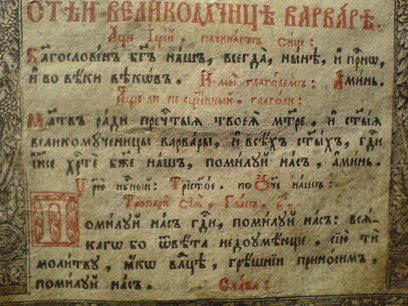 СТЕ́Й ВЕЛИКОМЧ҃НИЦЕ ВАРВА́РЕ.
Аще Іере́й, начина́етъ сице:
Благослове́нъ бг҃ъ на́шъ, всегда̀, ны́нѣ, и҆ при́сно,
и҆ во вѣ́ки вѣкѡ́въ. И҆ мы̀ глаго́лемъ: А҆ми́нь.
А҆́ще ли не сщ҃е́нный, глаго́ли:
Мл҃твъ ра́ди пречⷭ҇тыѧ твоеѧ̀ мт҃ре, и҆ ст҃ы́ѧ
великомⷱ҇ницы варва́ры, и҆ всѣ́хъ ст҃ы́хъ, гдⷭ҇и
і҆и҃се хрⷭ҇тѐ бж҃е на́шъ, поми́лꙋй на́съ, а҆ми́нь.
Цр҃ю̀ нбⷭ҇ный: Трист҃о́е. по О҆́ч҃е на́шъ:
Тропарѝ сїѧ̀, Гла́съ, ѕ҃.
Поми́лꙋй на́съ гдⷭ҇и, поми́лꙋй на́съ: всѧ́-
кагѡ бо ѿвѣ́та недоꙋмѣ́юще, сїю̀ тѝ
моли́твꙋ, ꙗ҆́кѡ влⷣцѣ, грѣ́шнїи прино́симъ,
поми́лꙋй на́съ. Сла́ва: